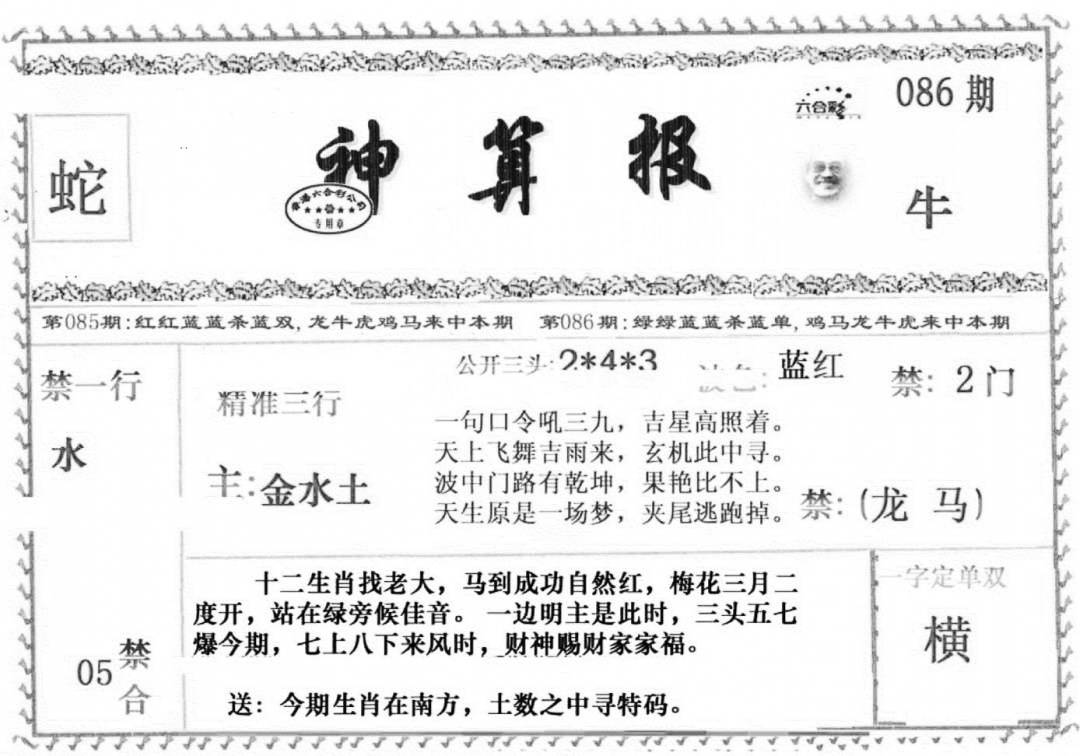 086期
六合彩
蛇
神算报
香港六合彩公司
专用章
牛
第085期:红红蓝蓝杀蓝双,龙牛虎鸡马来中本期 第086期:绿绿蓝蓝杀蓝单,鸡马龙牛虎来中本期
禁一行
水
精准三行
主:金水土
公开三头:2*4*3
波色:蓝红
禁:2门
一句口令吼三九，吉星高照着。
天上飞舞吉雨来，玄机此中寻。
波中门路有乾坤，果艳比不上。
天生原是一场梦，夹尾逃跑掉。
禁:(龙 马)
05禁合
十二生肖找老大，马到成功自然红，梅花三月二
度开，站在绿旁候佳音。一边明主是此时，三头五七
爆今期，七上八下来风时，财神赐财家家福。
送：今期生肖在南方，土数之中寻特码。
一字定单双
横